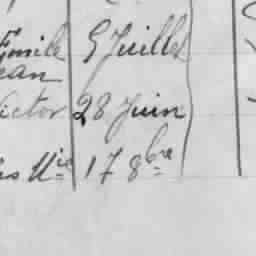 Emile 9 Juillet
ean
ictor 28 Juin
17 8bre